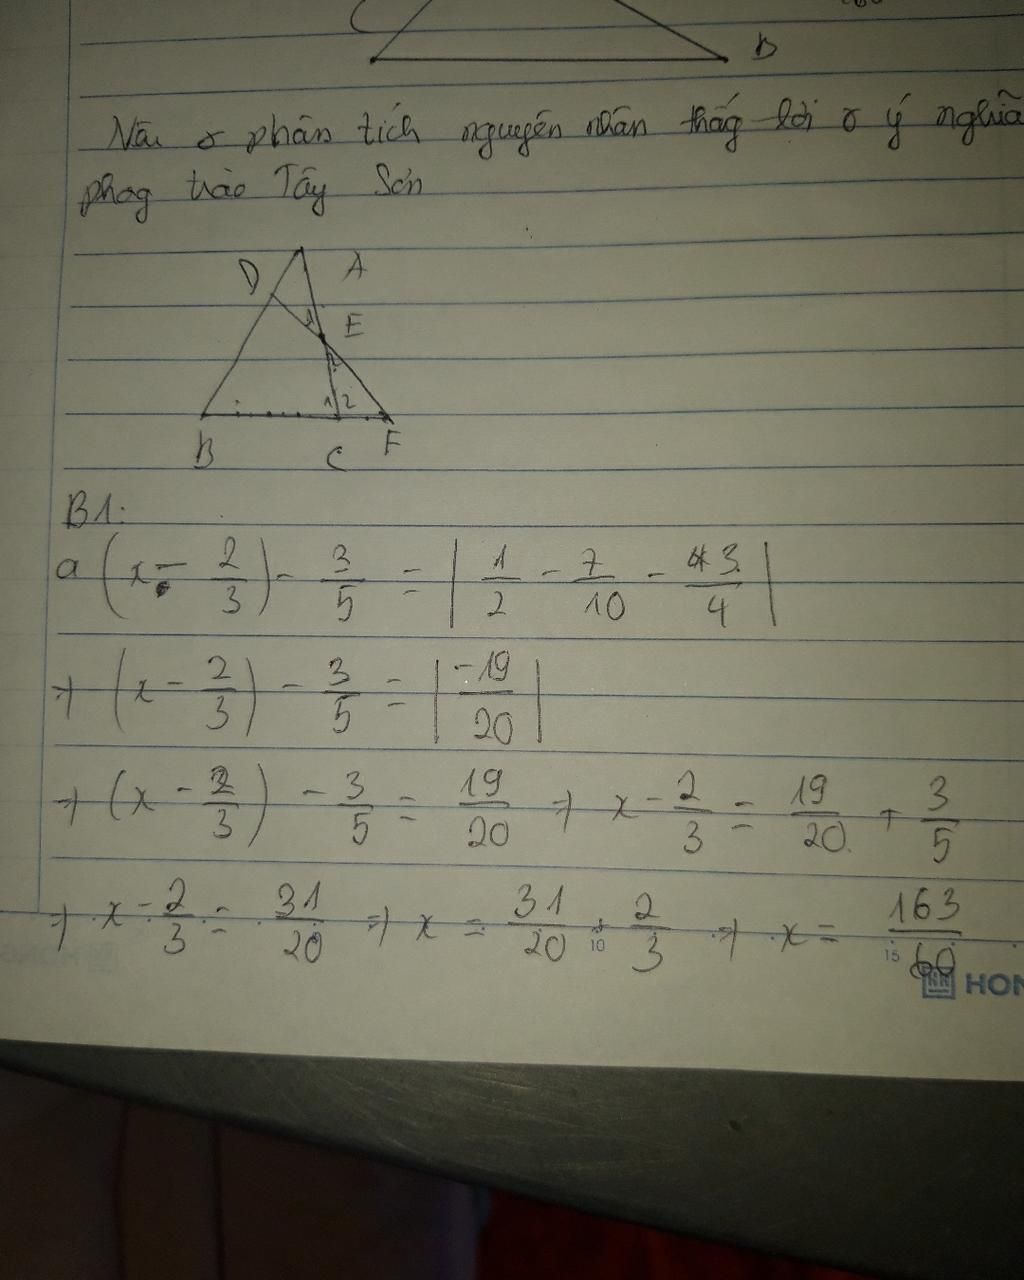 B
Nêu & phân tích nguyên nhân thắg lợi & ý nghĩa
phog trào Tây Sơn
D A
1 E
2
1 2
B C F
B1:
a (x - 2/3) - 3/5 = | 1/2 - 7/10 - 3/4 |
=> (x - 2/3) - 3/5 = | -19/20 |
=> (x - 2/3) - 3/5 = 19/20 => x - 2/3 = 19/20 + 3/5
=> x - 2/3 = 31/20 => x = 31/20 + 2/3 => x = 163/60
10 15
HON